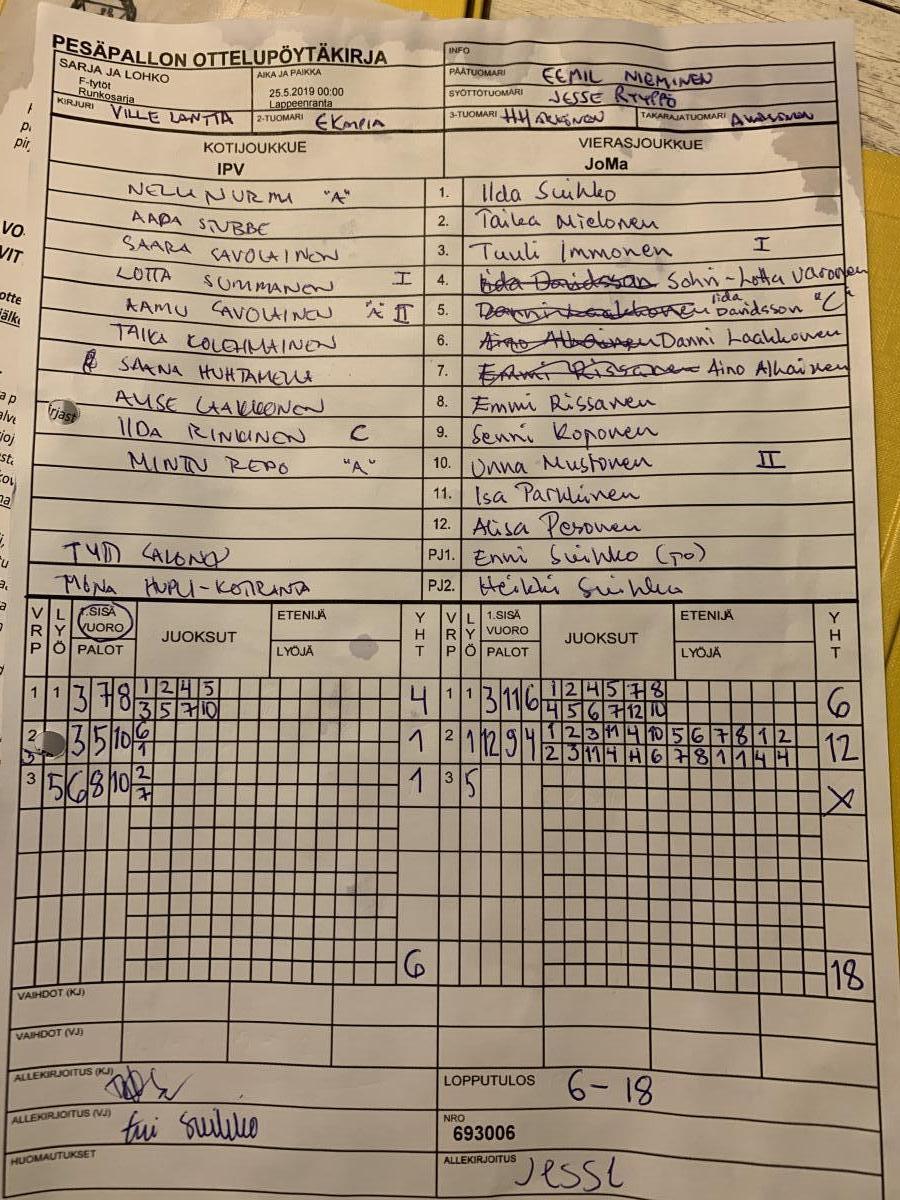 PESÄPALLON OTTELUPÖYTÄKIRJA
INFO
SARJA JA LOHKO
F-tytöt
Runkosarja
AIKA JA PAIKKA
25.5.2019 00:00
Lappeenranta
PÄÄTUOMARI EEMIL NIEMINEN
SYÖTTÖTUOMARI JESSE RYYPPÖ
KIRJURI VILLE LANTTA
2-TUOMARI
3-TUOMARI
TAKARAJATUOMARI
KOTIJOUKKUE
IPV
VIERASJOUKKUE
JoMa
NELLI NURMI "A" 1. Ilda Suihko
AADA STUBBE 2. Taika Mielonen
SAARA SAVOLAINEN 3. Tuuli Immonen I
LOTTA SUMMANEN I 4. Iida Davidsson Sohvi-Lotta Varonen
AAMU SAVOLAINEN "A" II 5. Danni Laakkonen Iida Davidsson "C"
TAIKA KOLEHMAINEN 6. Aino Alhainen Danni Laakkonen
SAANA HUHTAMELLA 7. Emmi Rissanen Aino Alhainen
ALISE LAAKKONEN 8. Emmi Rissanen
IIDA RINKINEN C 9. Senni Koponen
MINTTU REPO "A" 10. Unna Mustonen II
11. Isa Parkkinen
12. Alisa Pesonen
PJ1. Enni Suihko (PO)
MONA HUPLI-KOTIRANTA PJ2. Heikki Suihko
VRP LYÖ 1.SISÄ VUORO PALOT JUOKSUT ETENIJÄ LYÖJÄ YHT VRP LYÖ 1.SISÄ VUORO PALOT JUOKSUT ETENIJÄ LYÖJÄ YHT
1 1 3 7 8 1 2 4 5 4 1 1 3 11 6 1 2 4 5 7 8 6
3 5 7 10 4 5 6 7 12 10
2 3 5 10 6 1 2 1 12 9 4 1 2 3 11 4 10 5 6 7 8 1 2 12
1 2 3 11 4 4 6 7 8 1 1 4 4
3 5 6 8 10 2 1 3 5 X
7
6 18
VAIHDOT (KJ)
VAIHDOT (VJ)
ALLEKIRJOITUS (KJ)
LOPPUTULOS 6-18
ALLEKIRJOITUS (VJ) Suihko
NRO
693006
HUOMAUTUKSET
ALLEKIRJOITUS JESSE